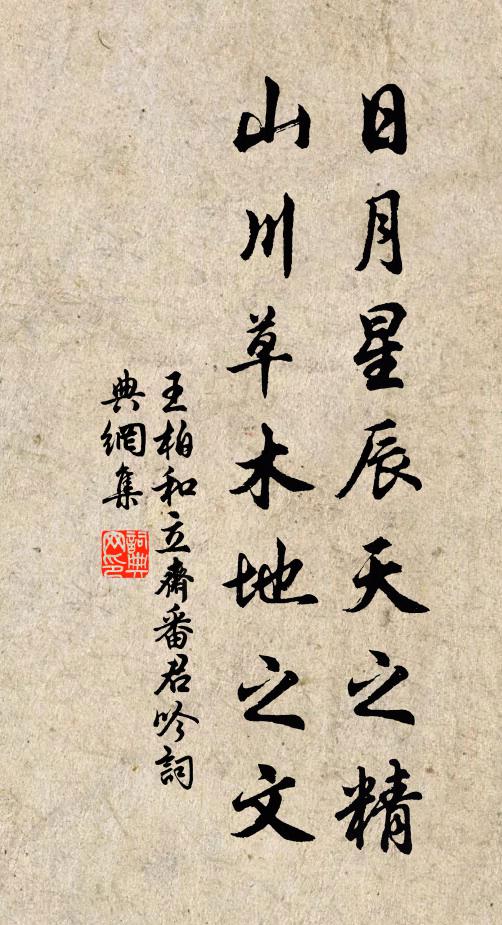 日月星辰天之精
山川草木地之文
王柏和立齋番君吟詞
典網集
詞典
网印